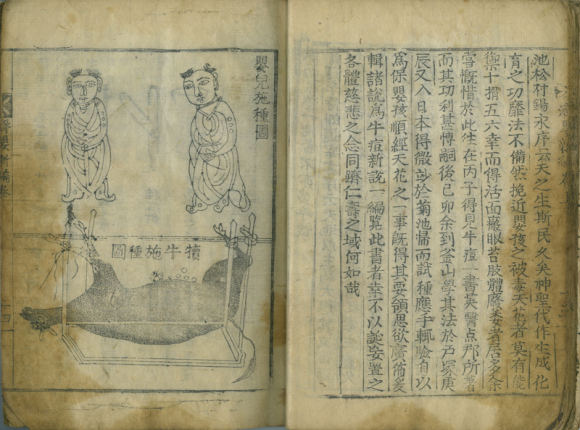 池松村錫永序云天之生斯民久矣神聖代作生成化
育之功靡法不備然挽近嬰孩之被毒天花者莫有能
十損五六幸而得活面眼眚肢體廢萎者居多余
嘗慨惜於此往在丙子得見牛痘一書英醫占那所著
而其功利甚博嗣後己卯余到釜山學其法於戶塚庚
辰又入日本得微妙於菊池而試種應手輒驗自以
爲保嬰孩順經天花之一事旣得其要領思欲廣術爰
輯諸說爲牛痘新說一編覽此書者幸不以誕妄置之
各體慈悲之念同躋仁壽之域何如哉
嬰兒施種圖
犢牛施種圖